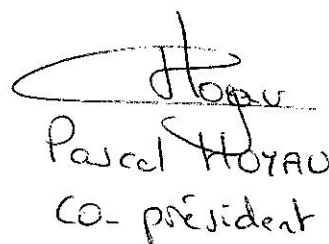 Hoyau
Pascal HOYAU
co-président